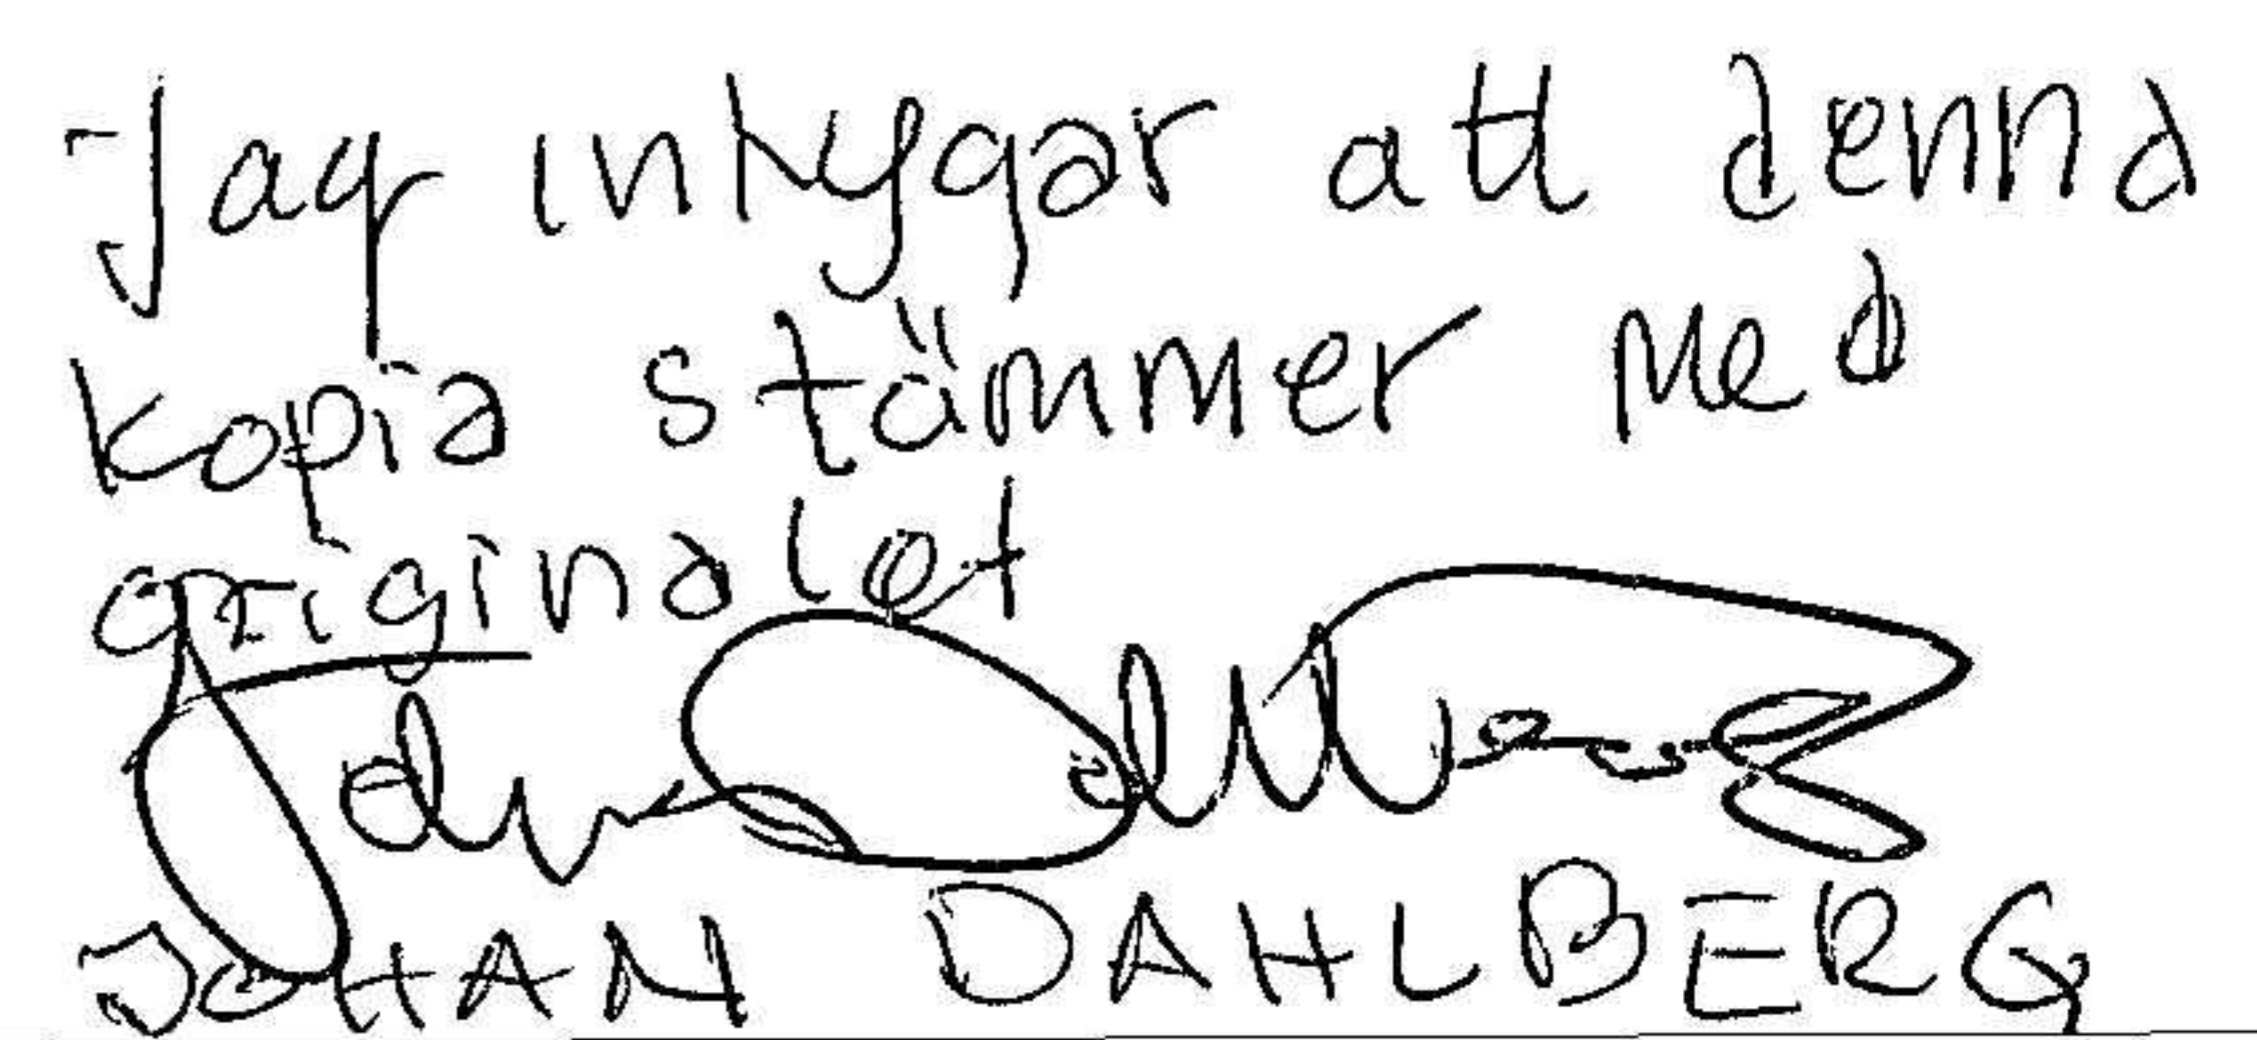 Jag intygar att denna
kopia stämmer med
originalet
Johan Dahlberg
JOHAN DAHLBERG